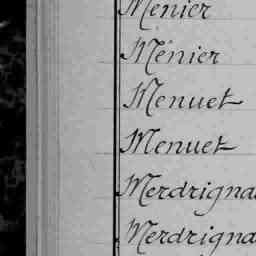 Menier
Ménier
Menuet
Menuet
Merdrigna
Merdrigna